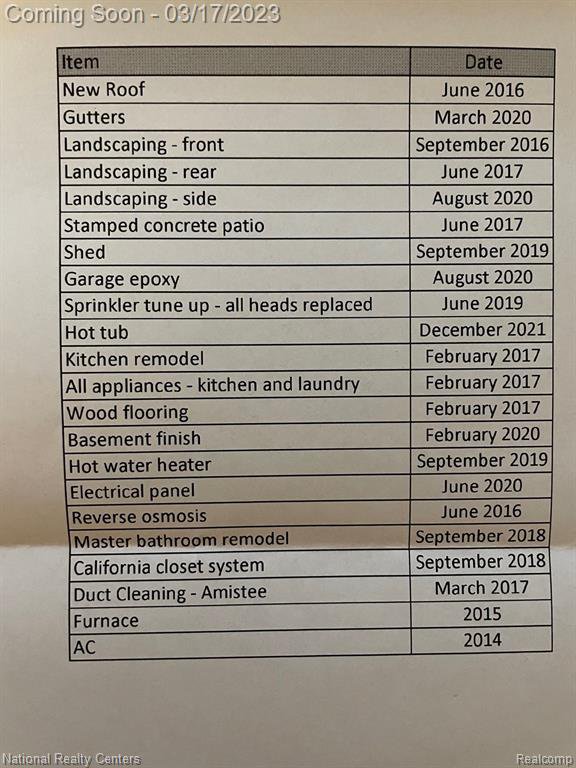 Coming Soon - 03/17/2023
Item Date
New Roof June 2016
Gutters March 2020
Landscaping - front September 2016
Landscaping - rear June 2017
Landscaping - side August 2020
Stamped concrete patio June 2017
Shed September 2019
Garage epoxy August 2020
Sprinkler tune up - all heads replaced June 2019
Hot tub December 2021
Kitchen remodel February 2017
All appliances - kitchen and laundry February 2017
Wood flooring February 2017
Basement finish February 2020
Hot water heater September 2019
Electrical panel June 2020
Reverse osmosis June 2016
Master bathroom remodel September 2018
California closet system September 2018
Duct Cleaning - Amistee March 2017
Furnace 2015
AC 2014
National Realty Centers Realcomp